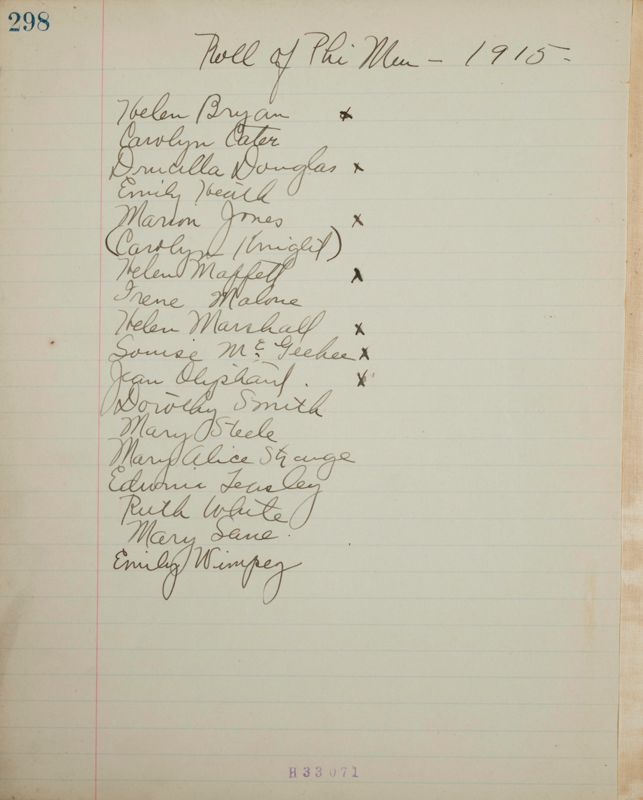 298
Roll of Phi Mu - 1915 -
Helen Bryan x
Carolyn Cater
Drucilla Douglas x
Emily Heath
Marion Jones x
(Carolyn Knight)
Helen Maffett x
Irene Malone
Helen Marshall x
Louise McGeehee x
Jean Oliphant. x
Dorothy Smith
Mary Steele
Mary Alice
Edwina Teasley
Ruth White
Mary Lane.
Emily Wimpey
H33071